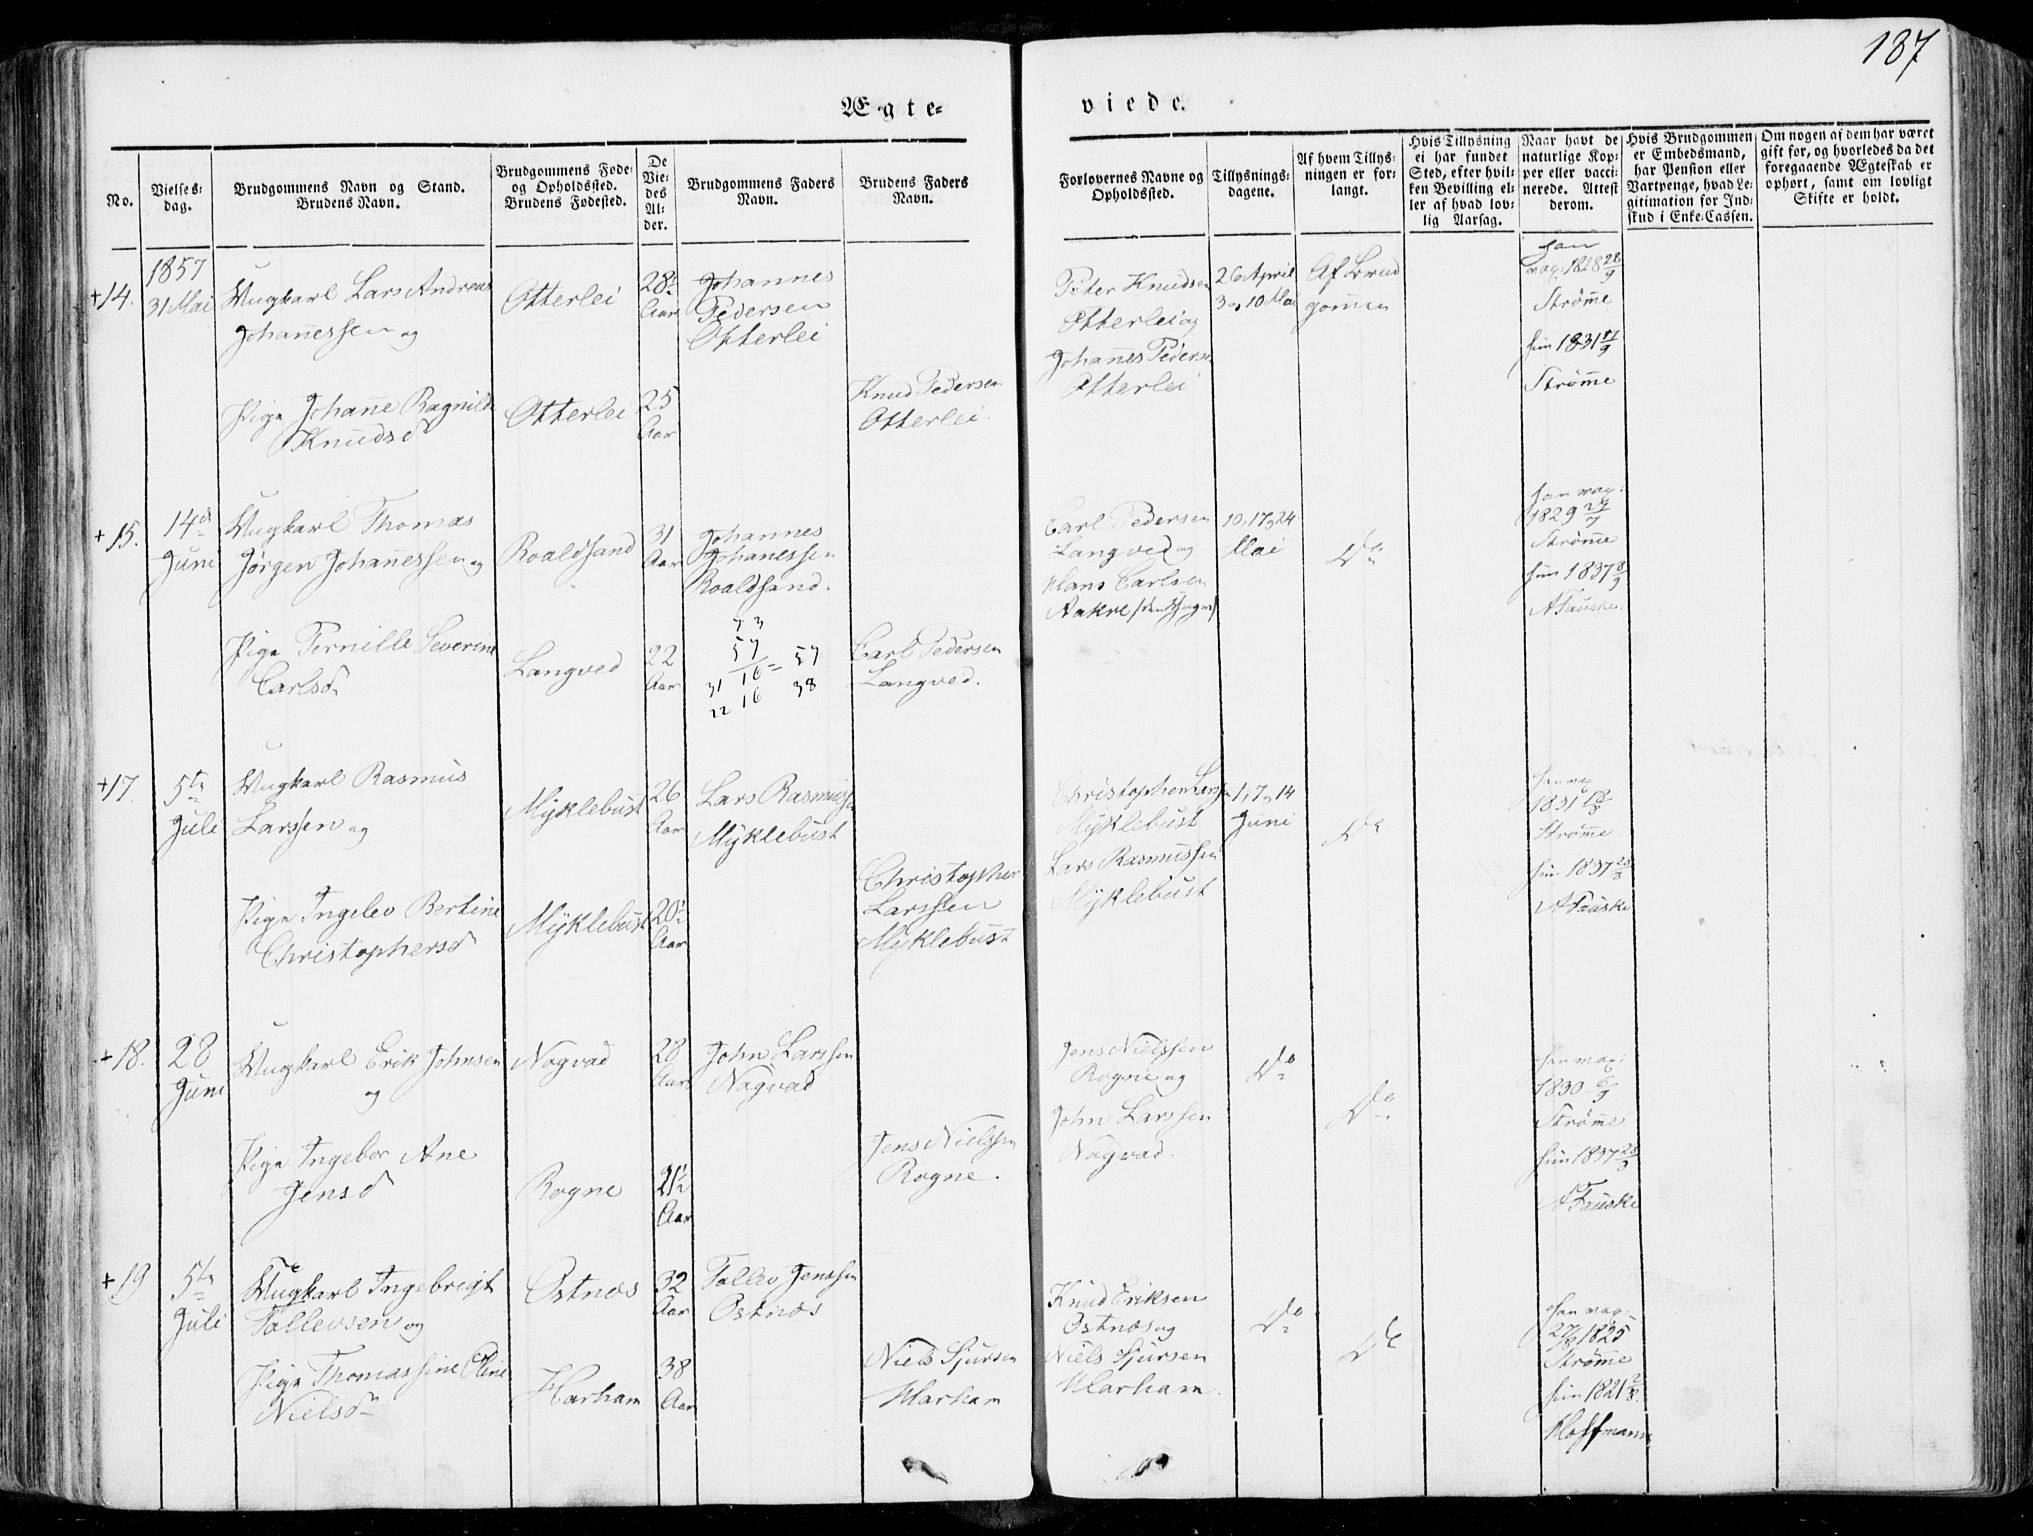 187
Ægte=
viede.
No.
Vielses=
dag.
Brudgommens Navn og Stand.
Brudens Navn.
Brudgommens Føde=
og Opholdssted.
Brudens Fødested.
De
Vie=
des
Al=
der.
Brudgommens Faders
Navn.
Brudens Faders
Navn.
Forlovernes Navne og
Opholdssted.
Tillysnings=
dagene.
Af hvem Tillys=
ningen er for=
langt.
Hvis Tillysning
ei har fundet
Sted, efter hvil=
ken Bevilling el=
ler af hvad lov=
lig Aarsag.
Naar havt de
naturlige Kop=
per eller vacci=
nerede. Attest
derom.
Hvis Brudgommen
er Embedsmand,
har Pension eller
Vartpenge, hvad Le=
gitimation for Ind=
skud i Enke=Cassen.
Om nogen af dem har været
gift før, og hvorledes da det
foregaaende Ægteskab er
ophørt, samt om lovligt
Skifte er holdt.
1857
+14.
31 Mai
Ungkarl Lars Andreas
Johannessen og
Otterlei
28½
Aar
Johannes
Pedersen
Otterlei
Peter Knudsen
Otterlei og
Johannes Pedersen
Otterlei
26 April
3 og 10 Mai
Af Brud
gommen
han
vac: 1828 28/9
Strømme
hun 1831 17/9
Strømme
Pige Johanne Ragnild
Knudsd
Otterlei
25
Aar
Knud Pedersen
Otterlei.
+15.
14d
Juni
Ungkarl Thomas
Jørgen Johannessen og
Roaldsand
31
Aar
Johannes
Johanessen
Roaldsand.
Carl Pedersen
Langved og
Hans Carlsen
Aakre
10, 17 og 24
Mai
Do
han vac:
1829 29/7
Strømme
hun 1837 8/9
A Fauske.
Pige Pernille Severine
Carlsd
Langved
22
Aar
73
57
16 = 57
31
16 38
22
Carl Pedersen
Langved.
+17.
5te
Juli
Ungkarl Rasmus
Larssen og
Myklebust
26
Aar
Lars Rasmussen
Myklebust
Christopher Larssen
Myklebust
Lars Rasmussen
Myklebust
1, 7 og 14
Juni
Do
han vac
1831 18/8
Strømme
hun 1837
A Fauske
Pige Ingelev Bertine
Christophersd
Myklebust
20½
Aar
Christopher
Larssen
Myklebust
+18.
28
Juni
Ungkarl Erik Johnsen
og
Nogvad
28
Aar
John Larssen
Nogvad
Jens Nielssen
Rogne og
John Larssen
Nogvad.
Do
Do
han vac:
1830 6/9
Strømme
hun 1837
A Fauske
Pige Ingebor Ane
Jensd
Rogne
21½
Aar
Jens Nielssen
Rogne.
+19
5te
Juli
Ungkarl Ingebrigt
Tollevsen og
Ostnæs
32
Aar
Tollev Jenssen
Ostnæs
Knud Eriksen
Ostnæs og
Niels Sjursen
Harham.
Do
Do
han vac:
1825
Strømme
hun 1821
Hoffmann
Pige Thomassine Oline
Nielsd
Harham
38
Aar
Niels Sjursen
Harham